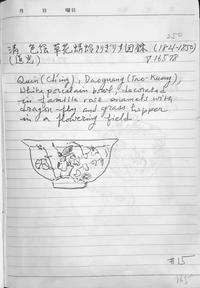 月 日 曜日
250
清 色絵 草花蜻蛉きりぎりす図鉢 (1821-1850)
(道光)
▽16578
Quin (Ch'ing), Daoquang (Tao-Kuang),
White porcelain bowl, decorated
in famille rose enamels with
dragon-fly and grass hopper
in a flowering field.
#15
165